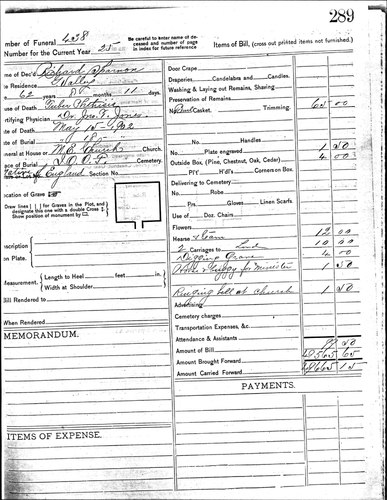 289
Number of Funeral 4238
Number for the Current Year 25
Be carefully to enter name of de-
ceased and number of page
in index for future reference.
Items of Bill, (cross out printed items not furnished.)
me of Dec'd Richard Shannon
Residence Wallis
e 62 years 8 months 11 days.
e of Death
ertifying Physician Dr. Jno. F. Jones.
te of Death May 15 - 1902
te of Burial " 18 "
neral at House or M.E. Church Church.
ace of Burial I.O.O.F. Cemetery.
Native of England Section No.
ocation of Grave
Draw lines in the Plot, and
designate this one with a double Cross
Show position of monument by
nscription
on Plate.
Measurement. Length to Heel feet in.
Width at Shoulder
Bill Rendered to
When Rendered
MEMORANDUM.
ITEMS OF EXPENSE.
Door Crape
Draperies Candelabra and Candles.
Washing & Laying out Remains, Shaving
Preservation of Remains
No. Casket. Trimming. 65 00
No. Handles
Plate engraved 1 50
Outside Box, (Pine, Chestnut, Oak, Cedar) 4 00
P'l'y H'dl's Corners on Box.
Delivering to Cemetery
No. Robe
Prs. Gloves Linen Scarfs.
Use of Doz. Chairs
Flowers
Hearse & team 12 00
2 Carriages to 10 00
Digging Grave 4 00
Horse & Buggy for Minister 1 50
Ringing bell at church 1 50
Advertising
Cemetery charges
Transportation Expenses, &c.
Attendance & Assistants
Amount of Bill 99 50
Amount Brought Forward
Amount Carried Forward
PAYMENTS.